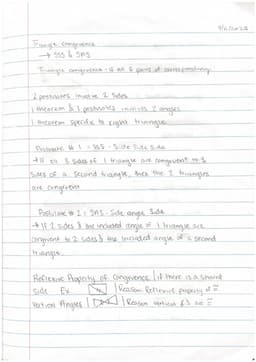 Triangle congruence
→ SSS & SAS
Triangle congruence - if all 6 pairs of corresponding
2 postulates involve 2 sides
1 theorem & 1 postulates involves 2 angles
1 theorem specific to right triangle
Postulate # 1 = SSS - Side Side Side
→ If to 3 sides of 1 triangle are congruent to 3
sides of a second triangle, then the 2 triangles
are congruent
Postulate # 2 = SAS - Side angle Side
→ If 2 sides & the included angle of 1 triangle are
congruent to 2 sides & the included angle of a second
triangle.
Reflexive Property of Congruence | if there is a shared
side Ex. | Reason: Reflexive property of ≅
Vertical Angles | | Reason vertical ∠s are ≅